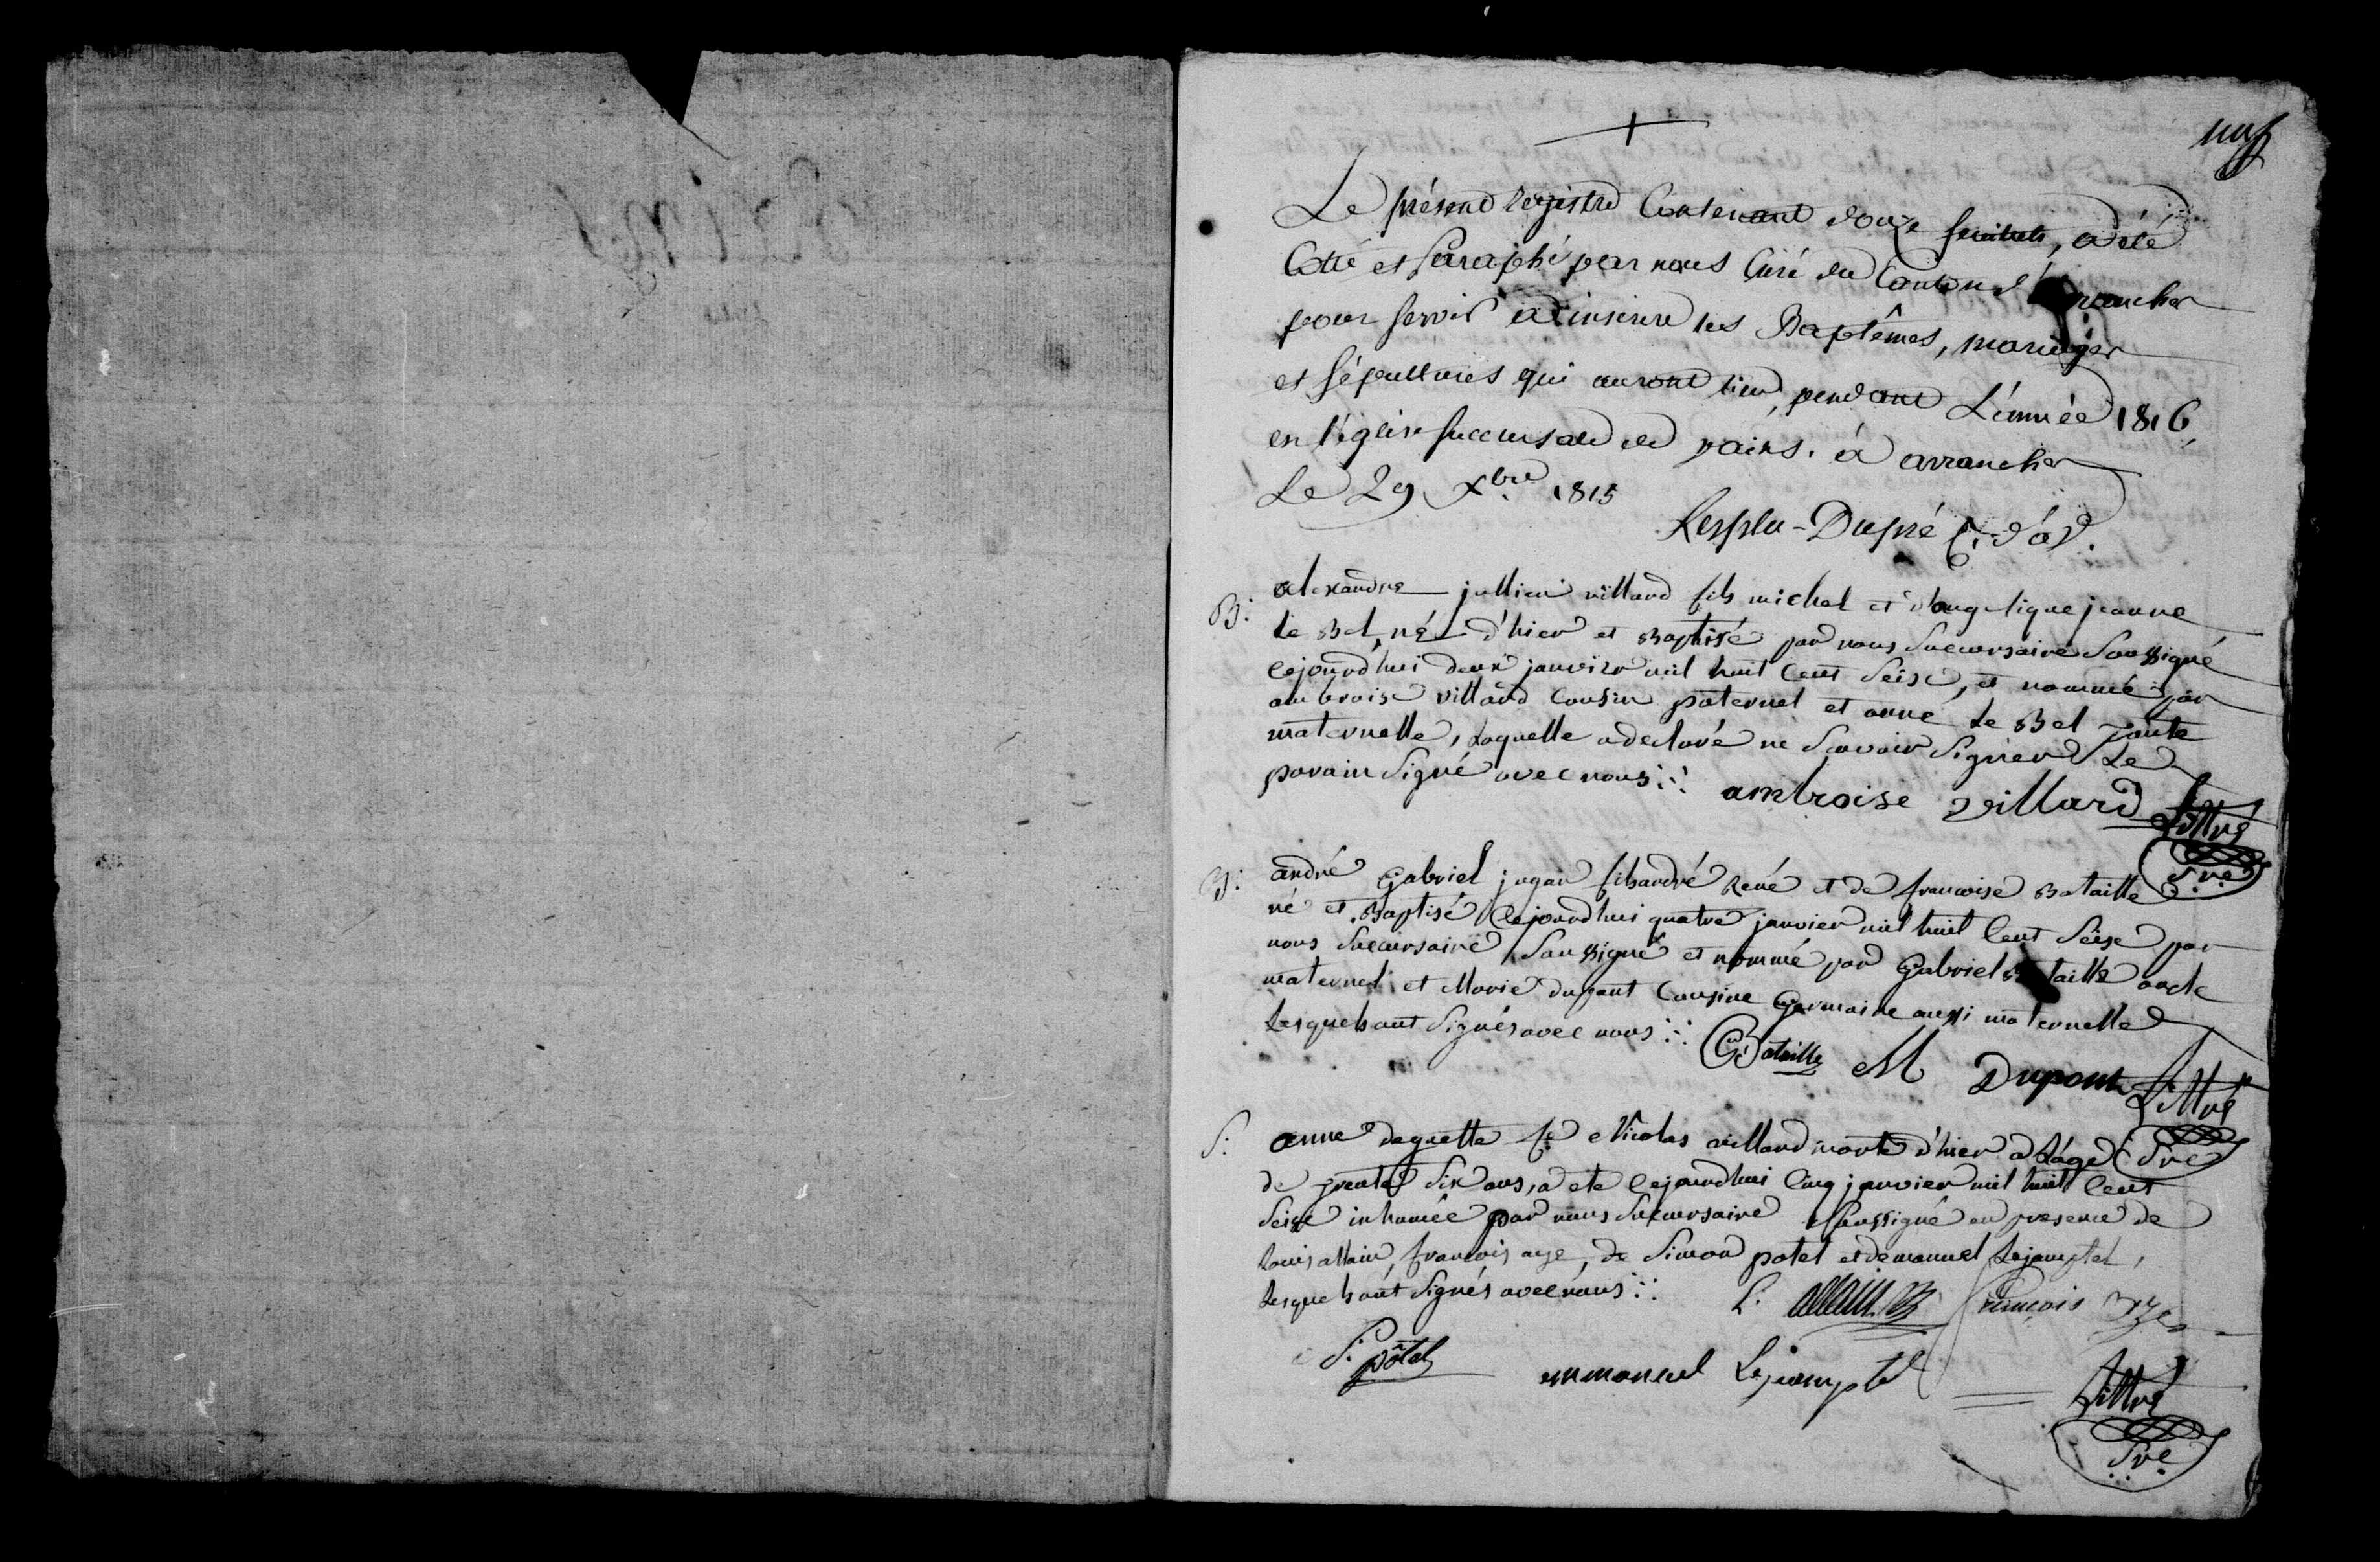 Le présent registre Contenant douze feuillets, a été
Cotté et Paraphé par nous Curé du Canton d'avranches
pour servir à inserire les Baptêmes, mariages
et sépultures qui auront lieu pendant L'année 1816
en l'église succursale de vains. à avranches
Le 29 Xbre 1815
Lesplu-Dupré C. d'av.
B: alexandre jullien villard fils michel et d'angelique jeanne
le Bel, né d'hier et Baptisé par nous Succursaire Soussigné
cejourd'hui deux janvier mil huit Cent Seise, et nommé par
ambroise villard Cousin paternel et anne Le Bel Tante
maternelle, Laquelle a declaré ne Scavoir Signer Le
parain Signé avec nous
ambroise villard Littré
Sre
B: andré Gabriel jugan fils andré René et de francoise Bataille
né et Baptisé Cejourd'hui quatre janvier mil huit Cent Seise par
nous Succursaire Soussigné et nommé par Gabriel Bataille oncle
maternel et Marie dupont Cousine Germaine aussi maternelle
Lesquels ont Signés avec nous
G Bataille M Dupont Littré
Sre
S: anne daguette fe Nicolas villard morte d'hier a Lâge
de trente Six ans, a eté Cejourd'hui Cinq janvier mil huit Cent
Seise inhumée par nous Succursaire Soussigné en presence de
Louis allain, francois aze, de Simon potel et demanuel Lejamptel,
Lesquels ont Signés avec nous
L. allain francois
S. potel emmanuel Lejamptel Littré
Sre